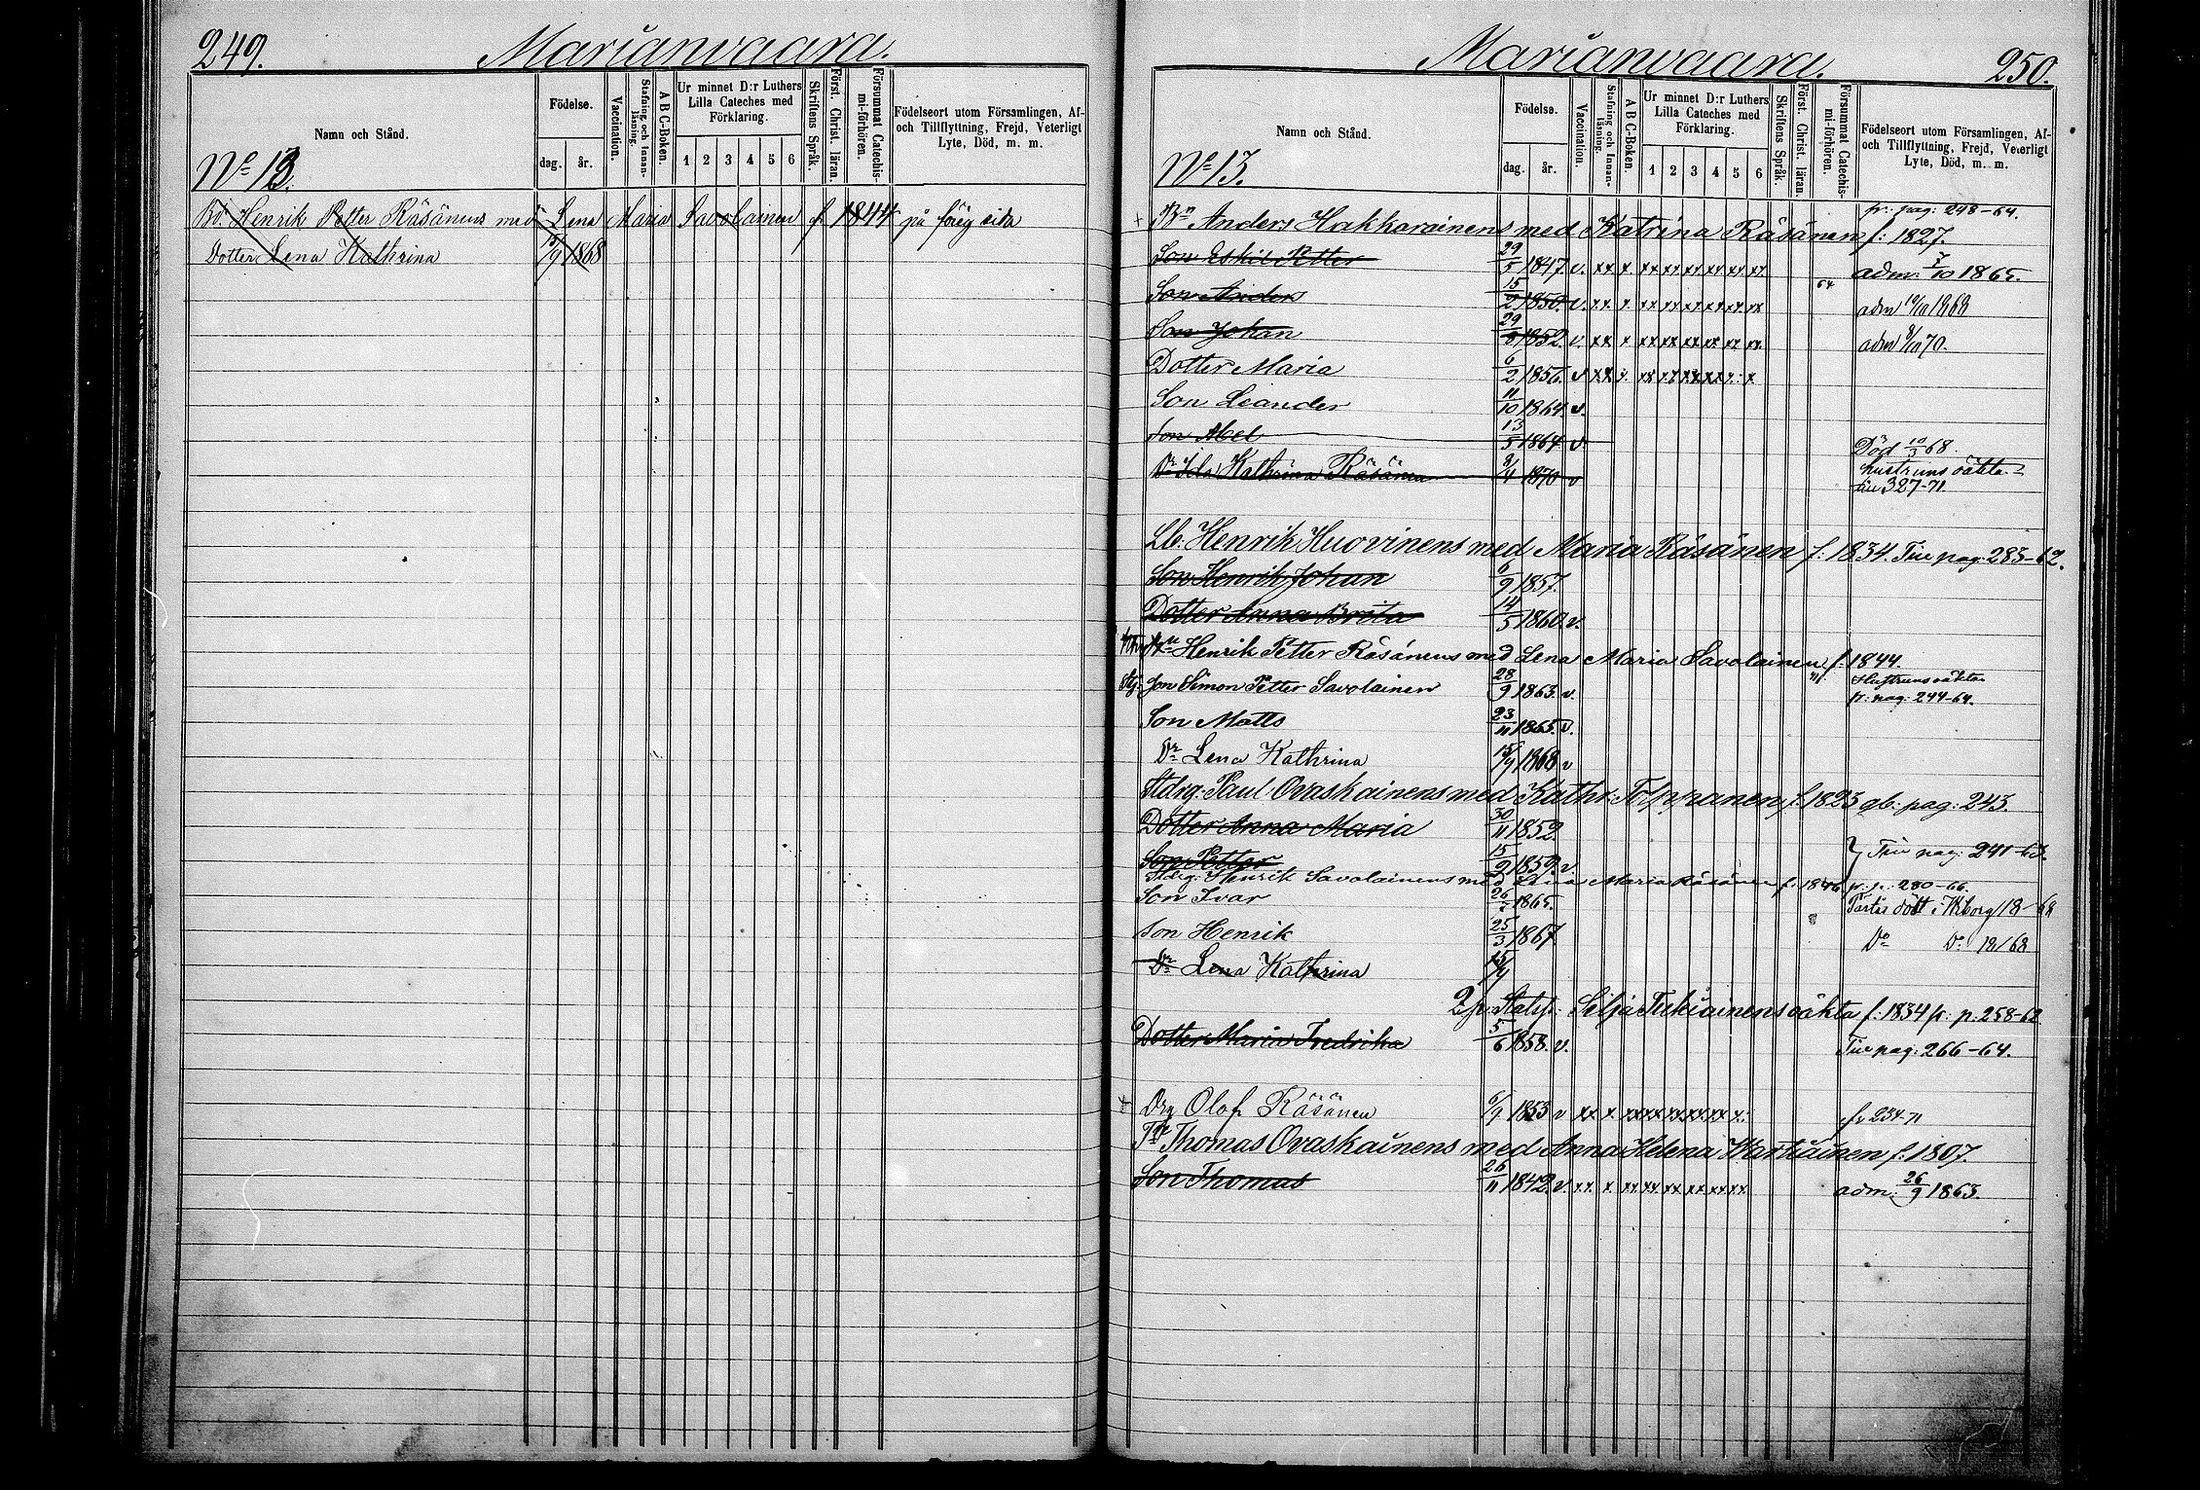 249.
Marianvaara.
Namn och Stånd.
Födelse.
dag.
år.
Vaccination.
Stafning och Innanläsning.
A B C-Boken.
Ur minnet D:r Luthers Lilla Cateches med Förklaring.
1 2 3 4 5 6
Skriftens Språk.
Först. Christ. läran.
Försummat Catechismi-förhören.
Födelseort utom Församlingen, Af- och Tillflyttning, Frejd, Veterligt Lyte, Död, m. m.
No 13.
Henrik Petter Räsänens med Lena Maria Savolainen f. 1844 på föreg sida
Dotter Lena Kathrina 15/9 1868
Marianvaara.
250.
Namn och Stånd.
Födelse.
dag.
år.
Vaccination.
Stafning och Innanläsning.
A B C-Boken.
Ur minnet D:r Luthers Lilla Cateches med Förklaring.
1 2 3 4 5 6
Skriftens Språk.
Först. Christ. läran
Försummat Catechismi-förhören.
Födelseort utom Församlingen, Af- och Tillflyttning, Frejd, Veterligt Lyte, Död, m. m.
No 13.
Anders Hakkarainens med Katrina Räsänen f: 1827. fr: pag: 248-64.
Son Eskil Petter 29/5 1847. v. xx x xx xx xx xx xx xx adm: 7/10 1865.
Son Anders 15/2 1850. v. xx x xx xx xx xx xx xx 64 adm 10/10 1868
Son Johan 29/8 1852. v. xx x xx xx xx xx xx xx adm 9/10 70.
Dotter Maria 6/2 1856. v
Son Leander 11/10 1864. v.
Son Abel 13/5 1864 v. Död 10/3 68.
Dr Ida Kathrina Räsänen 8/4 1870 v hustruns oäkta 327-71
Lb: Henrik Huovinens med Maria Räsänen f: 1834. Tue pag: 283-62.
Son Henrik Johan 6/9 1857.
Dotter Anna Brita 14/5 1860. v.
Henrik Petter Räsänens med Lena Maria Savolainen f. 1844.
Son Simon Petter Savolainen 28/9 1863. v. Hustruns oäkta fr: pag: 244-64.
Son Matts 23/11 1865. v.
Dr Lena Kathrina 15/9 1868 v
Stdrg: Paul Ovaskainens med Kathr: Toppanen f. 1823 gb: pag: 243
Dotter Anna Maria 30/11 1852.
Son Petter 15/9 1859. v. pag: 241-
Stdrg: Henrik Savolainens med Maria Räsänen f. 1846 fr: p: 280-66.
Son Ivar 26/ 1865. dött i Wiborg 18/68
Son Henrik 25/3 1867 Do Do 18/68
Dr Lena Kathrina 15/9
Silja Tukiainens oäkta f: 1834 fr: p: 258-62
Dotter Maria Fredrika 5/6 1858. v. Tue pag: 266-64.
Drg Olof Räsänen 6/9 1853 v xx x. fr 234-71
Thomas Ovaskainens med Anna Helena Wartiainen f. 1807.
Son Thomas 26/11 1842. v. xx x xx xx xx xx xx xx adm: 26/9 1863.